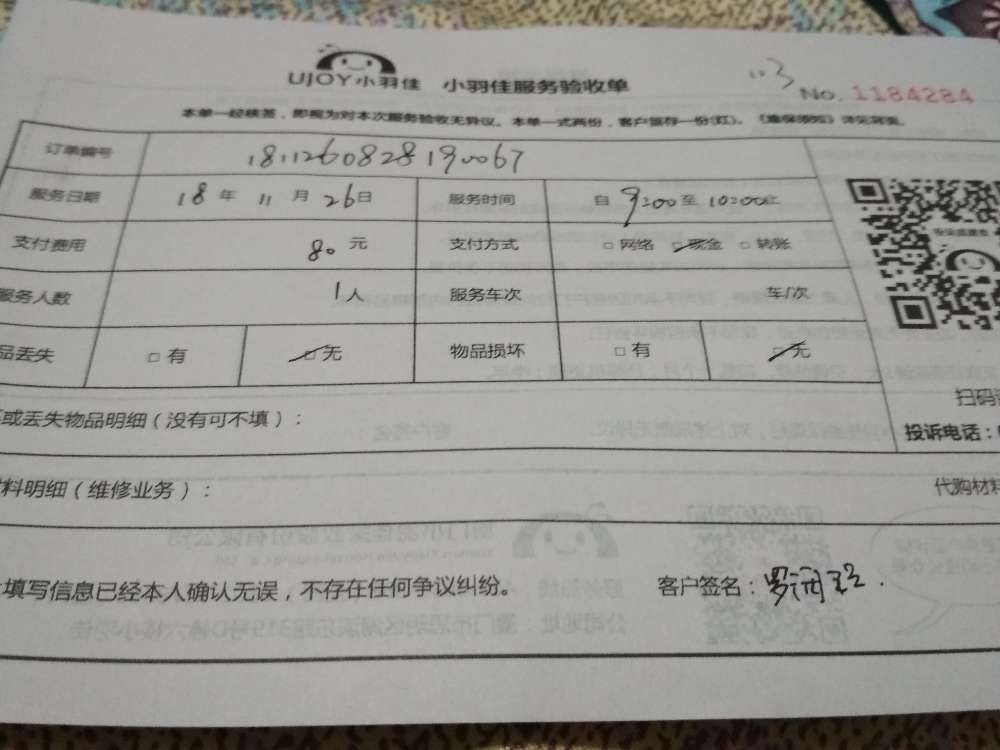 UJOY小羽佳 小羽佳服务验收单
No. 1184284
本单一经核签，即视为对本次服务验收无异议。本单一式两份，客户留存一份(红)。
订单编号 1811260828190067
服务日期 18 年 11 月 26 日 服务时间 自 9:00 至 10:00 止
支付费用 80 元 支付方式 □ 网络 □ 现金 □ 转账
服务人数 1 人 服务车次 车/次
品丢失 □ 有 □ 无 物品损坏 □ 有 □ 无
扫码
或丢失物品明细（没有可不填）：
投诉电话：
料明细（维修业务）：
代购材料
填写信息已经本人确认无误，不存在任何争议纠纷。 客户签名：罗